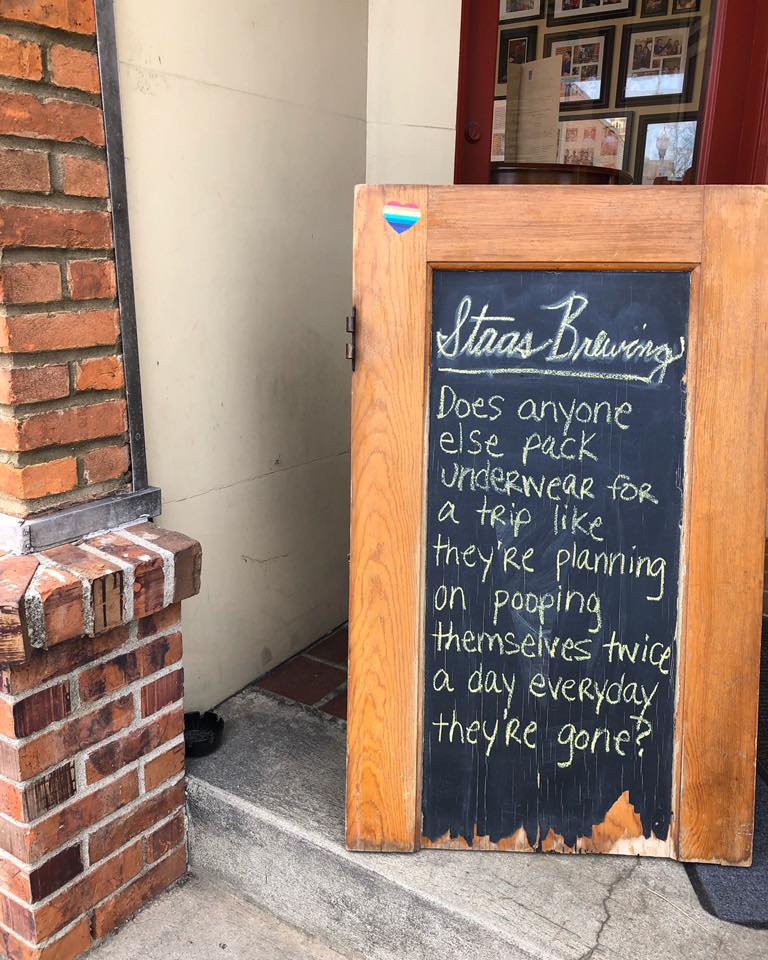 Staas Brewing
Does anyone
else pack
underwear for
a trip like
they're planning
on pooping
themselves twice
a day everyday
they're gone?